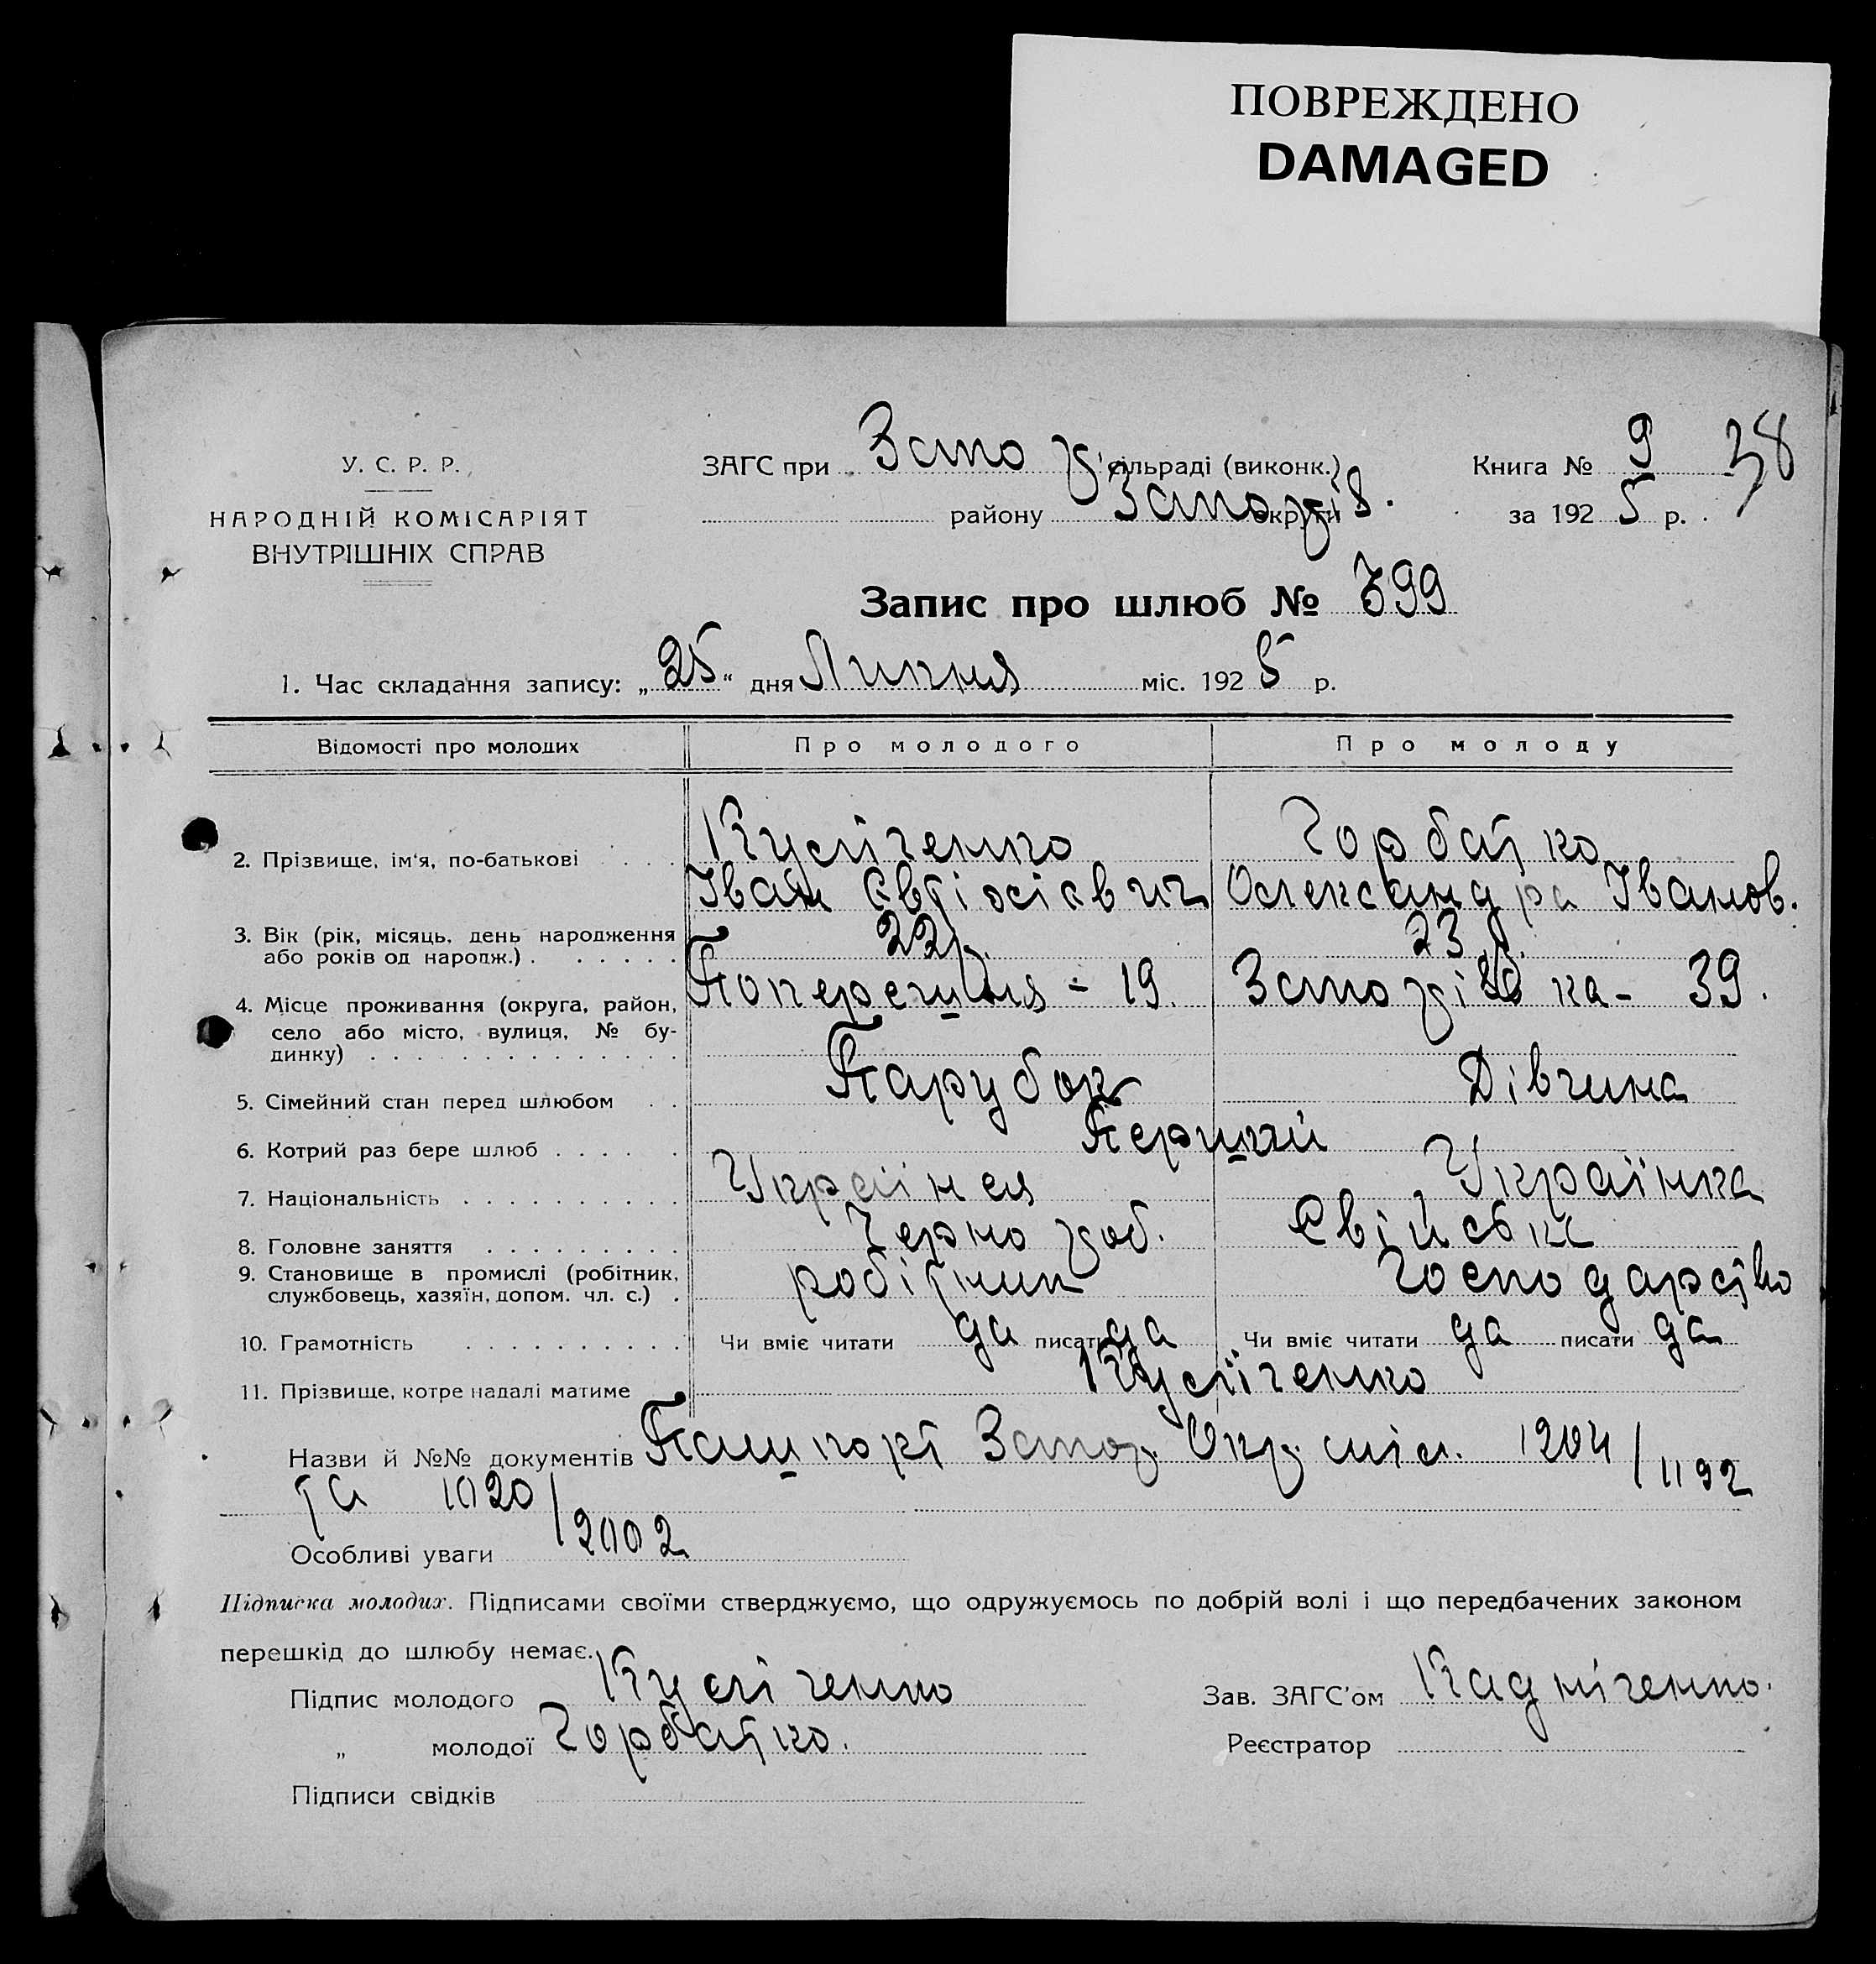 ПОВРЕЖДЕНО
DAMAGED
У. С. Р. Р.
НАРОДНІЙ КОМІСАРІЯТ
ВНУТРІШНІХ СПРАВ
ЗАГС при Запор. сільраді (виконк.)
району Запоріз. округи
Книга № 9 38
за 1925 р.
Запис про шлюб № 399
1. Час складання запису: „25“ дня Липня міс. 1925 р.
Відомості про молодих Про молодого Про молоду
2. Прізвище, ім'я, по-батькові Куліченко Горбатко
Іван Олександра Іванов.
3. Вік (рік, місяць, день народження 22 р. 23 р.
або років од народж.)
4. Місце проживання (округа, район, Поперечная - 19. 39.
село або місто, вулиця, № бу-
динку)
5. Сімейний стан перед шлюбом Парубок Дівчина
6. Котрий раз бере шлюб Перший
7. Національність Українец Українка
8. Головне заняття Чернороб. Свійське
9. Становище в промислі (робітник, робітник господарство
службовець, хазяїн, допом. чл. с.)
10. Грамотність Чи вміє читати да писати да Чи вміє читати да писати да
11. Прізвище, котре надалі матиме Куліченко
Назви й №№ документів Пашпорт Запор. Окр. міл. 1204/1192
та 1020/2002
Особливі уваги
Підписка молодих. Підписами своїми стверджуємо, що одружуємось по добрій волі і що передбачених законом
перешкід до шлюбу немає.
Підпис молодого Куліченко Зав. ЗАГС'ом
„ молодої Горбатко. Реєстратор
Підписи свідків